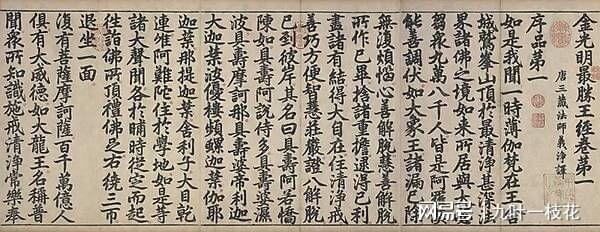 金光明最勝王經卷第一
序品第一
唐三藏法師義淨譯
如是我聞一時薄伽梵在王舍
城鷲峯山頂於最清淨甚深法
界諸佛之境如來所居與大苾
芻衆九萬八千人皆是阿羅漢
能善調伏如大象王諸漏已除
無復煩惱心善解脫慧善解脫
所作已畢捨諸重擔逮得己利
盡諸有結得大自在住清淨戒
善巧方便智慧莊嚴證八解脫
已到彼岸其名曰具壽阿若憍
陳如具壽阿說侍多具壽婆濕
波具壽摩訶那摩具壽婆帝利迦
大迦葉波優樓頻螺迦葉伽耶
迦葉那提迦葉舍利子大目乾
連唯阿難陀住於學地如是等
諸大聲聞各於晡時從定而起
往詣佛所頂禮佛足右繞三帀
退坐一面
復有菩薩摩訶薩百千萬億人
俱有大威德如大龍王名稱普
聞衆所知識施戒清淨常樂奉
网易号 | 九叶一枝花